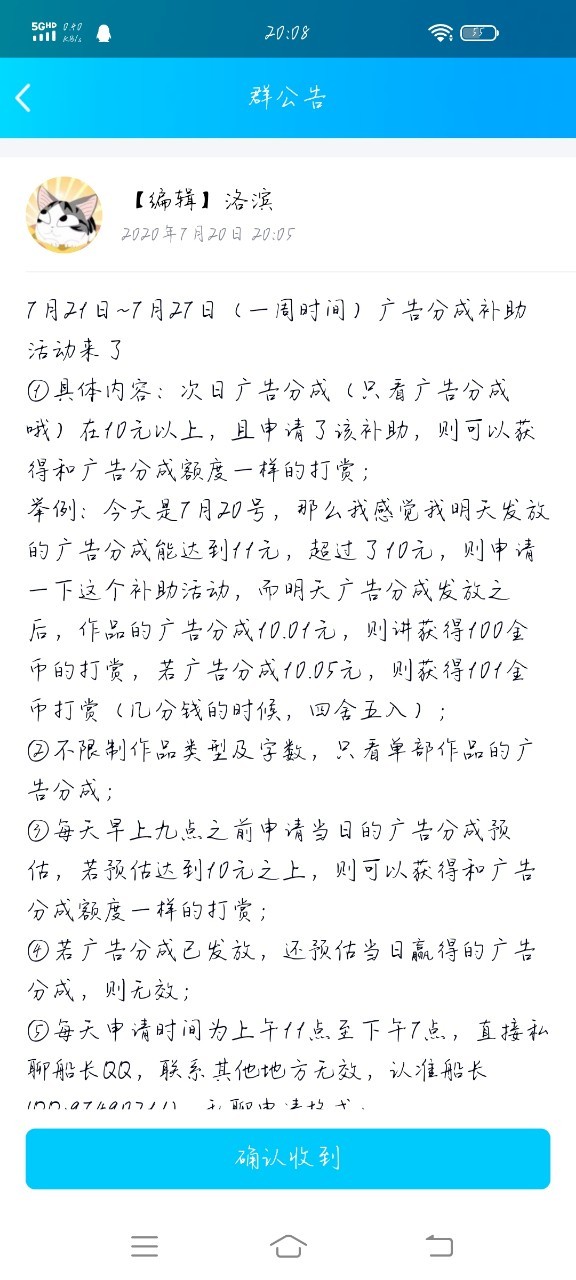 5GHD 0.40 KB/s 20:08 55
群公告
【编辑】洛滨
2020年7月20日 20:05
7月21日~7月27日（一周时间）广告分成补助
活动来了
①具体内容：次日广告分成（只看广告分成
哦）在10元以上，且申请了该补助，则可以获
得和广告分成额度一样的打赏；
举例：今天是7月20号，那么我感觉我明天发放
的广告分成能达到11元，超过了10元，则申请
一下这个补助活动，而明天广告分成发放之
后，作品的广告分成10.01元，则讲获得100金
币的打赏，若广告分成10.05元，则获得101金
币打赏（几分钱的时候，四舍五入）；
②不限制作品类型及字数，只看单部作品的广
告分成；
③每天早上九点之前申请当日的广告分成预
估，若预估达到10元之上，则可以获得和广告
分成额度一样的打赏；
④若广告分成已发放，还预估当日赢得的广告
分成，则无效；
⑤每天申请时间为上午11点至下午7点，直接私
聊船长QQ，联系其他地方无效，认准船长
私聊申请格式：
确认收到